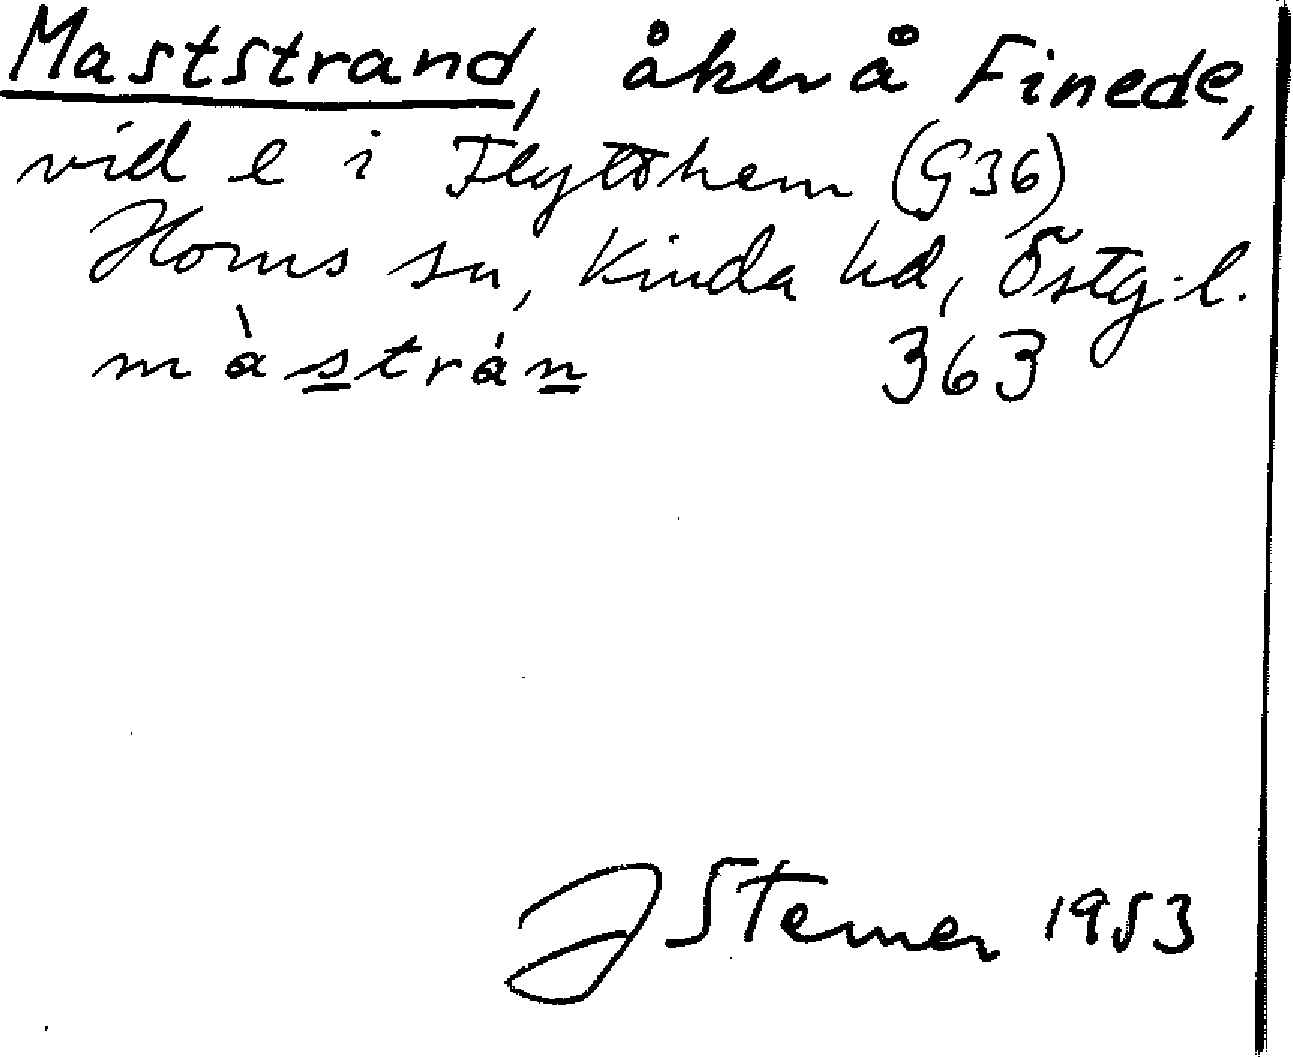 Maststrand, åker å Finede,
vid e i Flyttohem (G36)
Horns sn, Kinda hd, Östg.l.
màstrán 363
J Sterner 1953